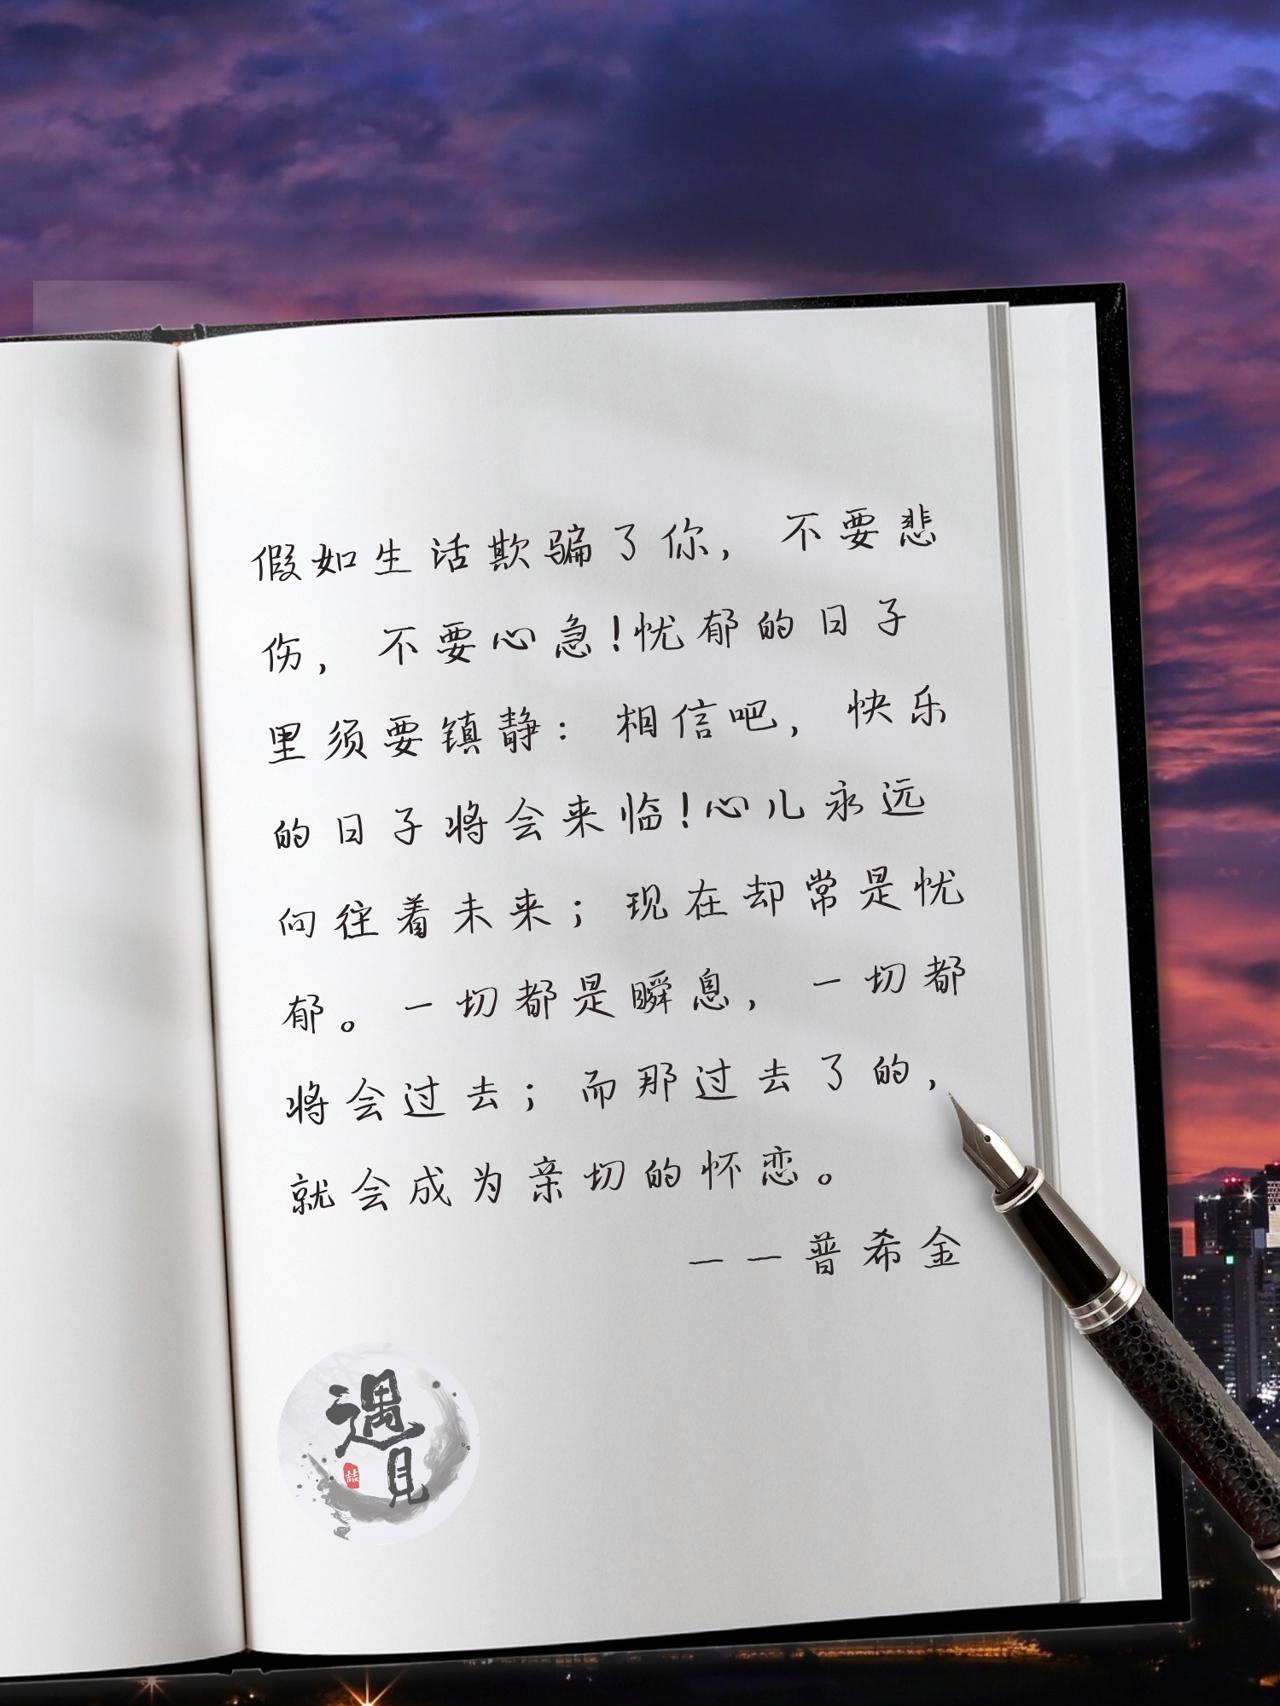 假如生活欺骗了你，不要悲
伤，不要心急！忧郁的日子
里须要镇静：相信吧，快乐
的日子将会来临！心儿永远
向往着未来；现在却常是忧
郁。一切都是瞬息，一切都
将会过去；而那过去了的，
就会成为亲切的怀恋。
——普希金
遇
見